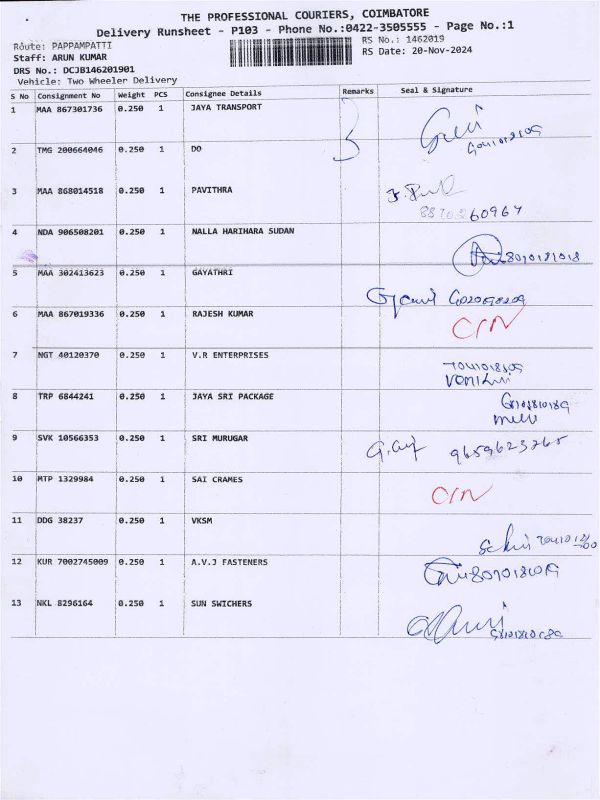 THE PROFESSIONAL COURIERS, COIMBATORE
Delivery Runsheet - P103 - Phone No.:0422-3505555 - Page No.:1
Route: PAPPAMPATTI RS No.: 1462019
Staff: ARUN KUMAR RS Date: 20-Nov-2024
DRS No.: DCJB146201901
Vehicle: Two Wheeler Delivery
S No Consignment No Weight PCS Consignee Details Remarks Seal & Signature
1 MAA 867301736 0.250 1 JAYA TRANSPORT
2 TMG 200664046 0.250 1 DO
3 MAA 868014518 0.250 1 PAVITHRA
4 NDA 906508201 0.250 1 NALLA HARIHARA SUDAN
5 MAA 302413623 0.250 1 GAYATHRI
6 MAA 867019336 0.250 1 RAJESH KUMAR
7 NGT 40120370 0.250 1 V.R ENTERPRISES
8 TRP 6844241 0.250 1 JAYA SRI PACKAGE
9 SVK 10566353 0.250 1 SRI MURUGAR 9659623265
10 MTP 1329984 0.250 1 SAI CRAMES
11 DDG 38237 0.250 1 VKSM
12 KUR 7002745009 0.250 1 A.V.J FASTENERS
13 NKL 8296164 0.250 1 SUN SWICHERS